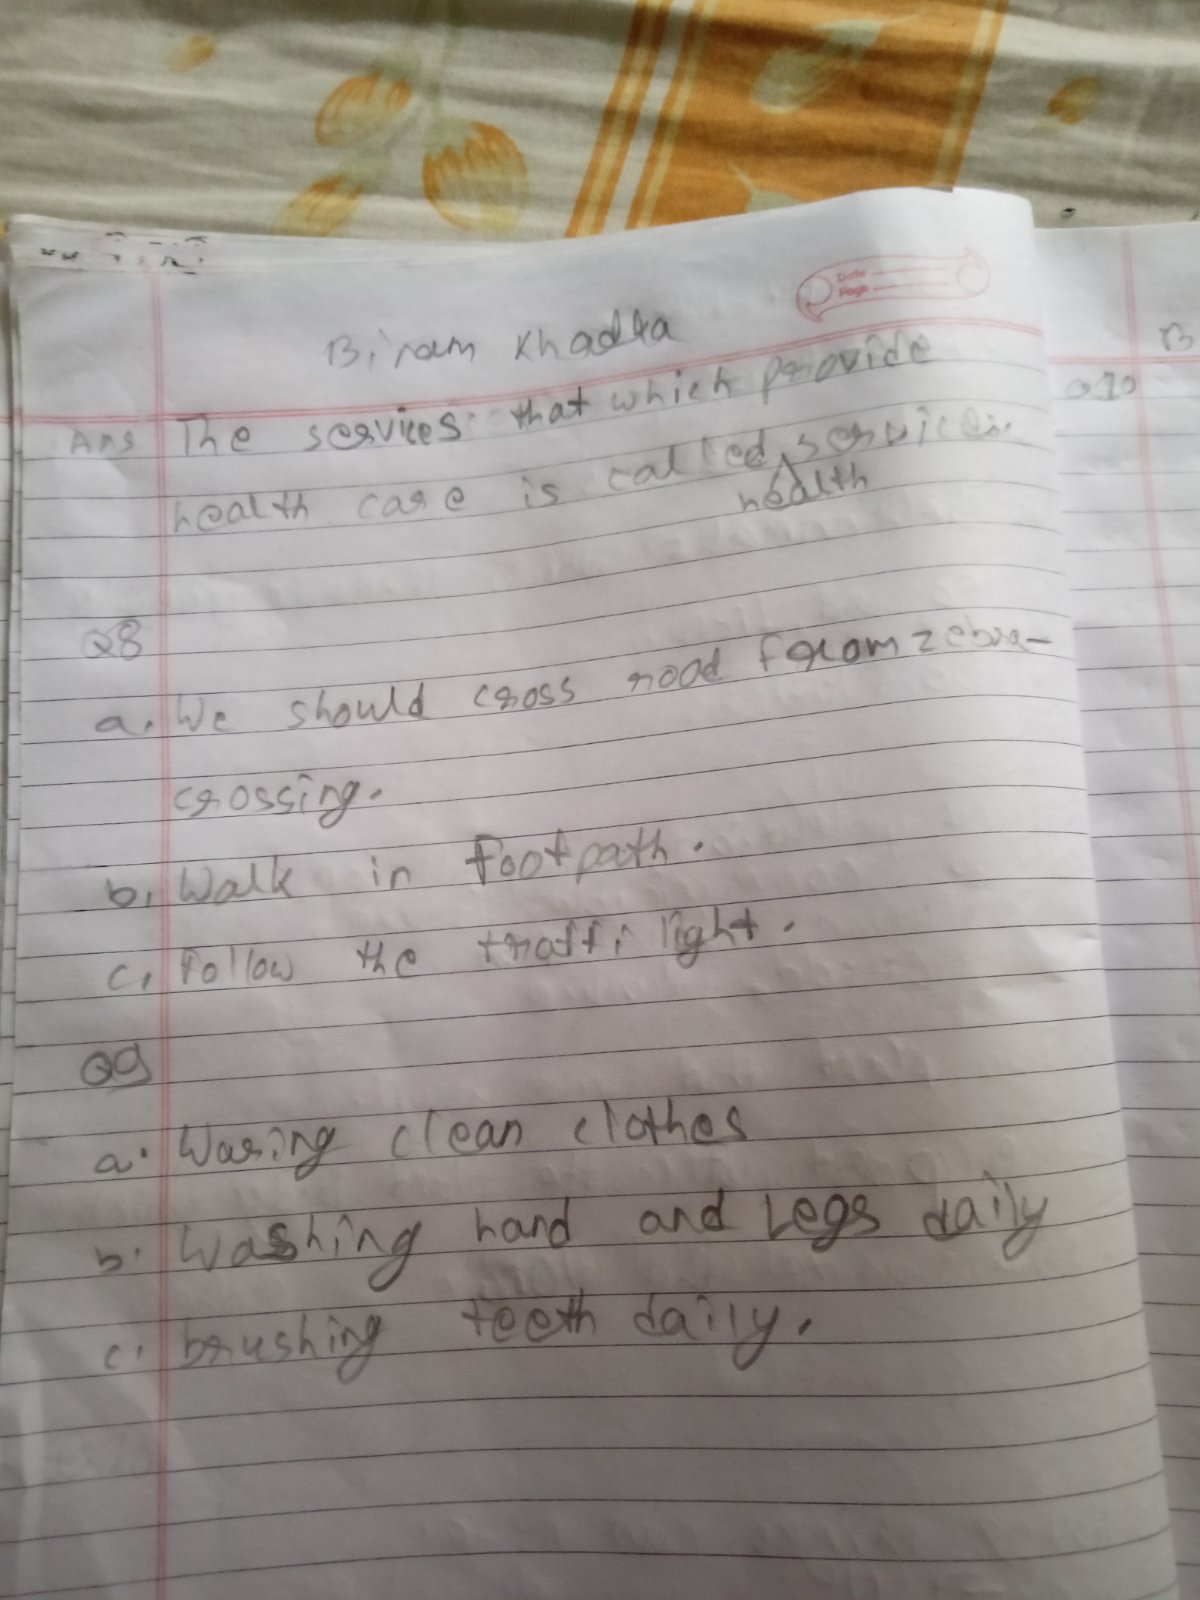 Date
Page
Biram Khadka
Ans The services that which provide
health care is called services.
health
Q8
a. We should cross road from zebra-
crossing.
b. Walk in footpath.
c. Follow the traffi light.
Q9
a. Waring clean clothes
b. Washing hand and Legs daily
c. brushing teeth daily.
B
Q10